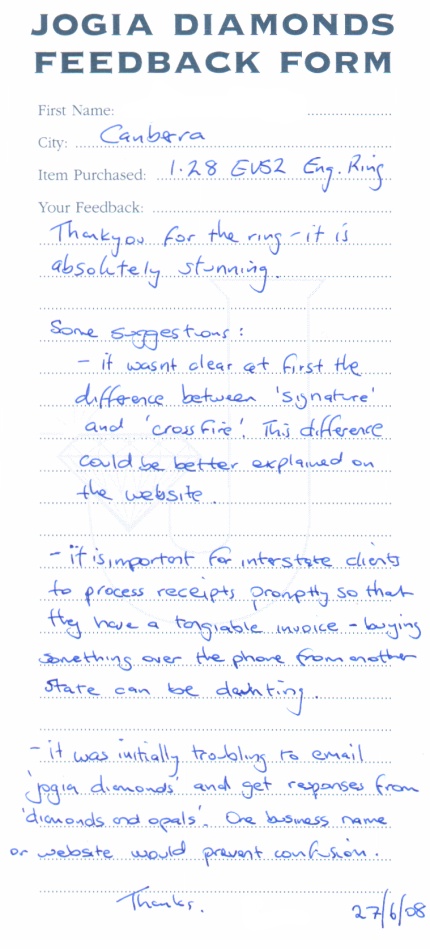 JOGIA DIAMONDS
FEEDBACK FORM
First Name:
City: Canberra
Item Purchased: 1.28 EVS2 Eng. Ring
Your Feedback:
Thankyou for the ring - it is
absolutely stunning.
Some suggestions:
- it wasnt clear at first the
difference between 'signature'
and 'crossfire'. This difference
could be better explained on
the website.
- it is important for interstate clients
to process receipts promptly so that
they have a tangiable invoice - buying
something over the phone from another
state can be daunting.
- it was initially troubling to email
'jogia diamonds' and get responses from
'diamonds and opals'. One business name
or website would prevent confusion.
Thanks.
27/6/08